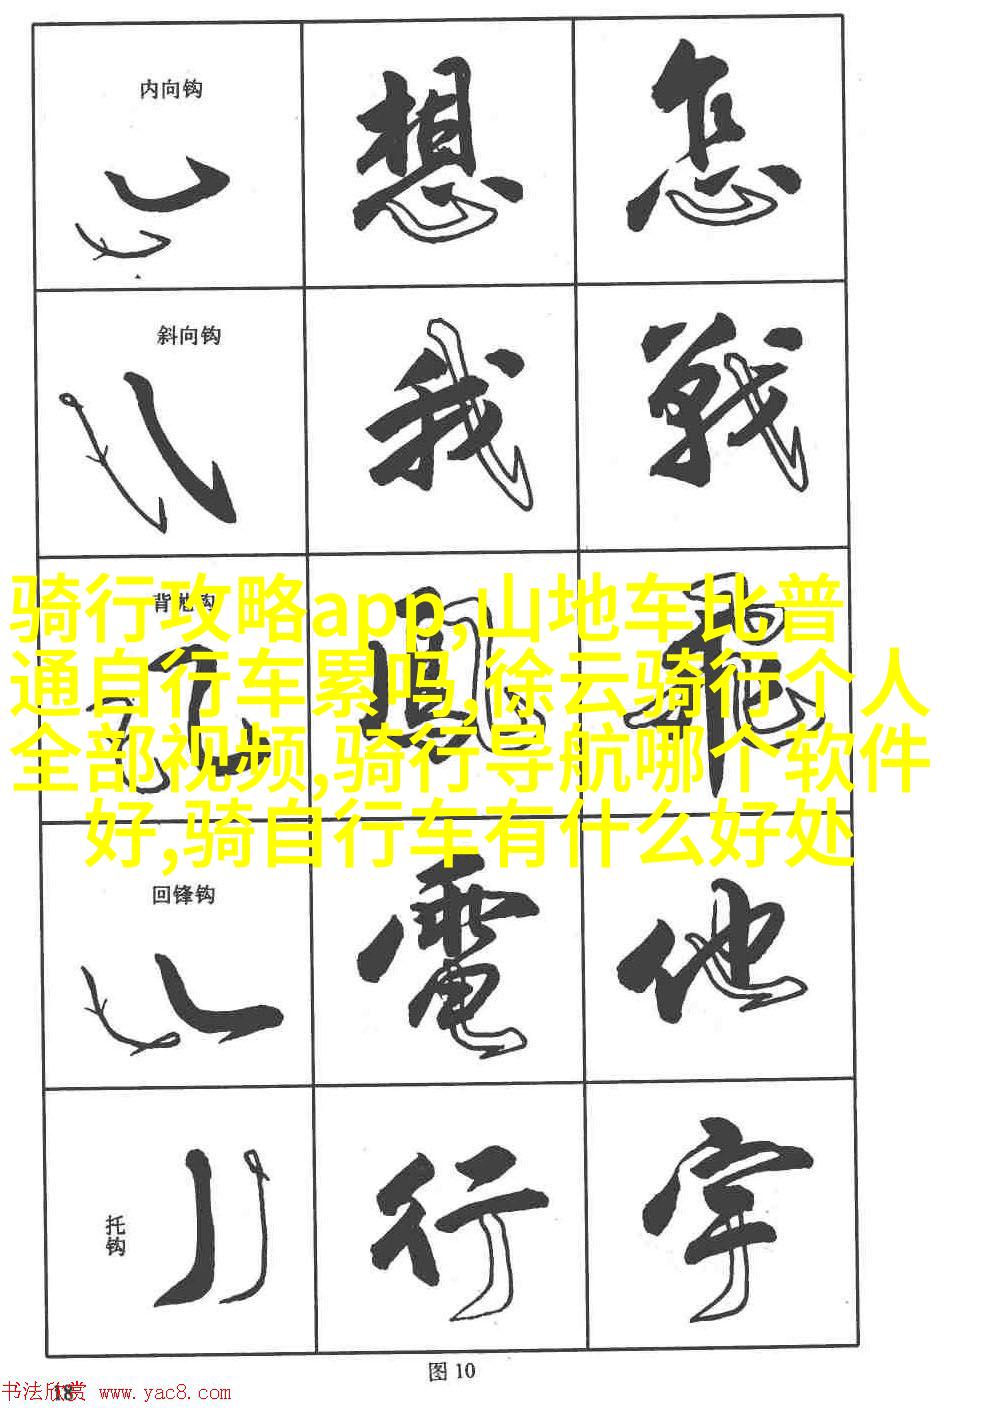 内向钩
想 怎
斜向钩
我 戰
背抛钩
風 飛
骑行攻略app,山地车比普
通自行车累吗,徐云骑行个人
全部视频,骑行导航哪个软件
好,骑自行车有什么好处
回锋钩
電 他
托钩
行 宇
图 10
18
书法欣赏 www.yac8.com